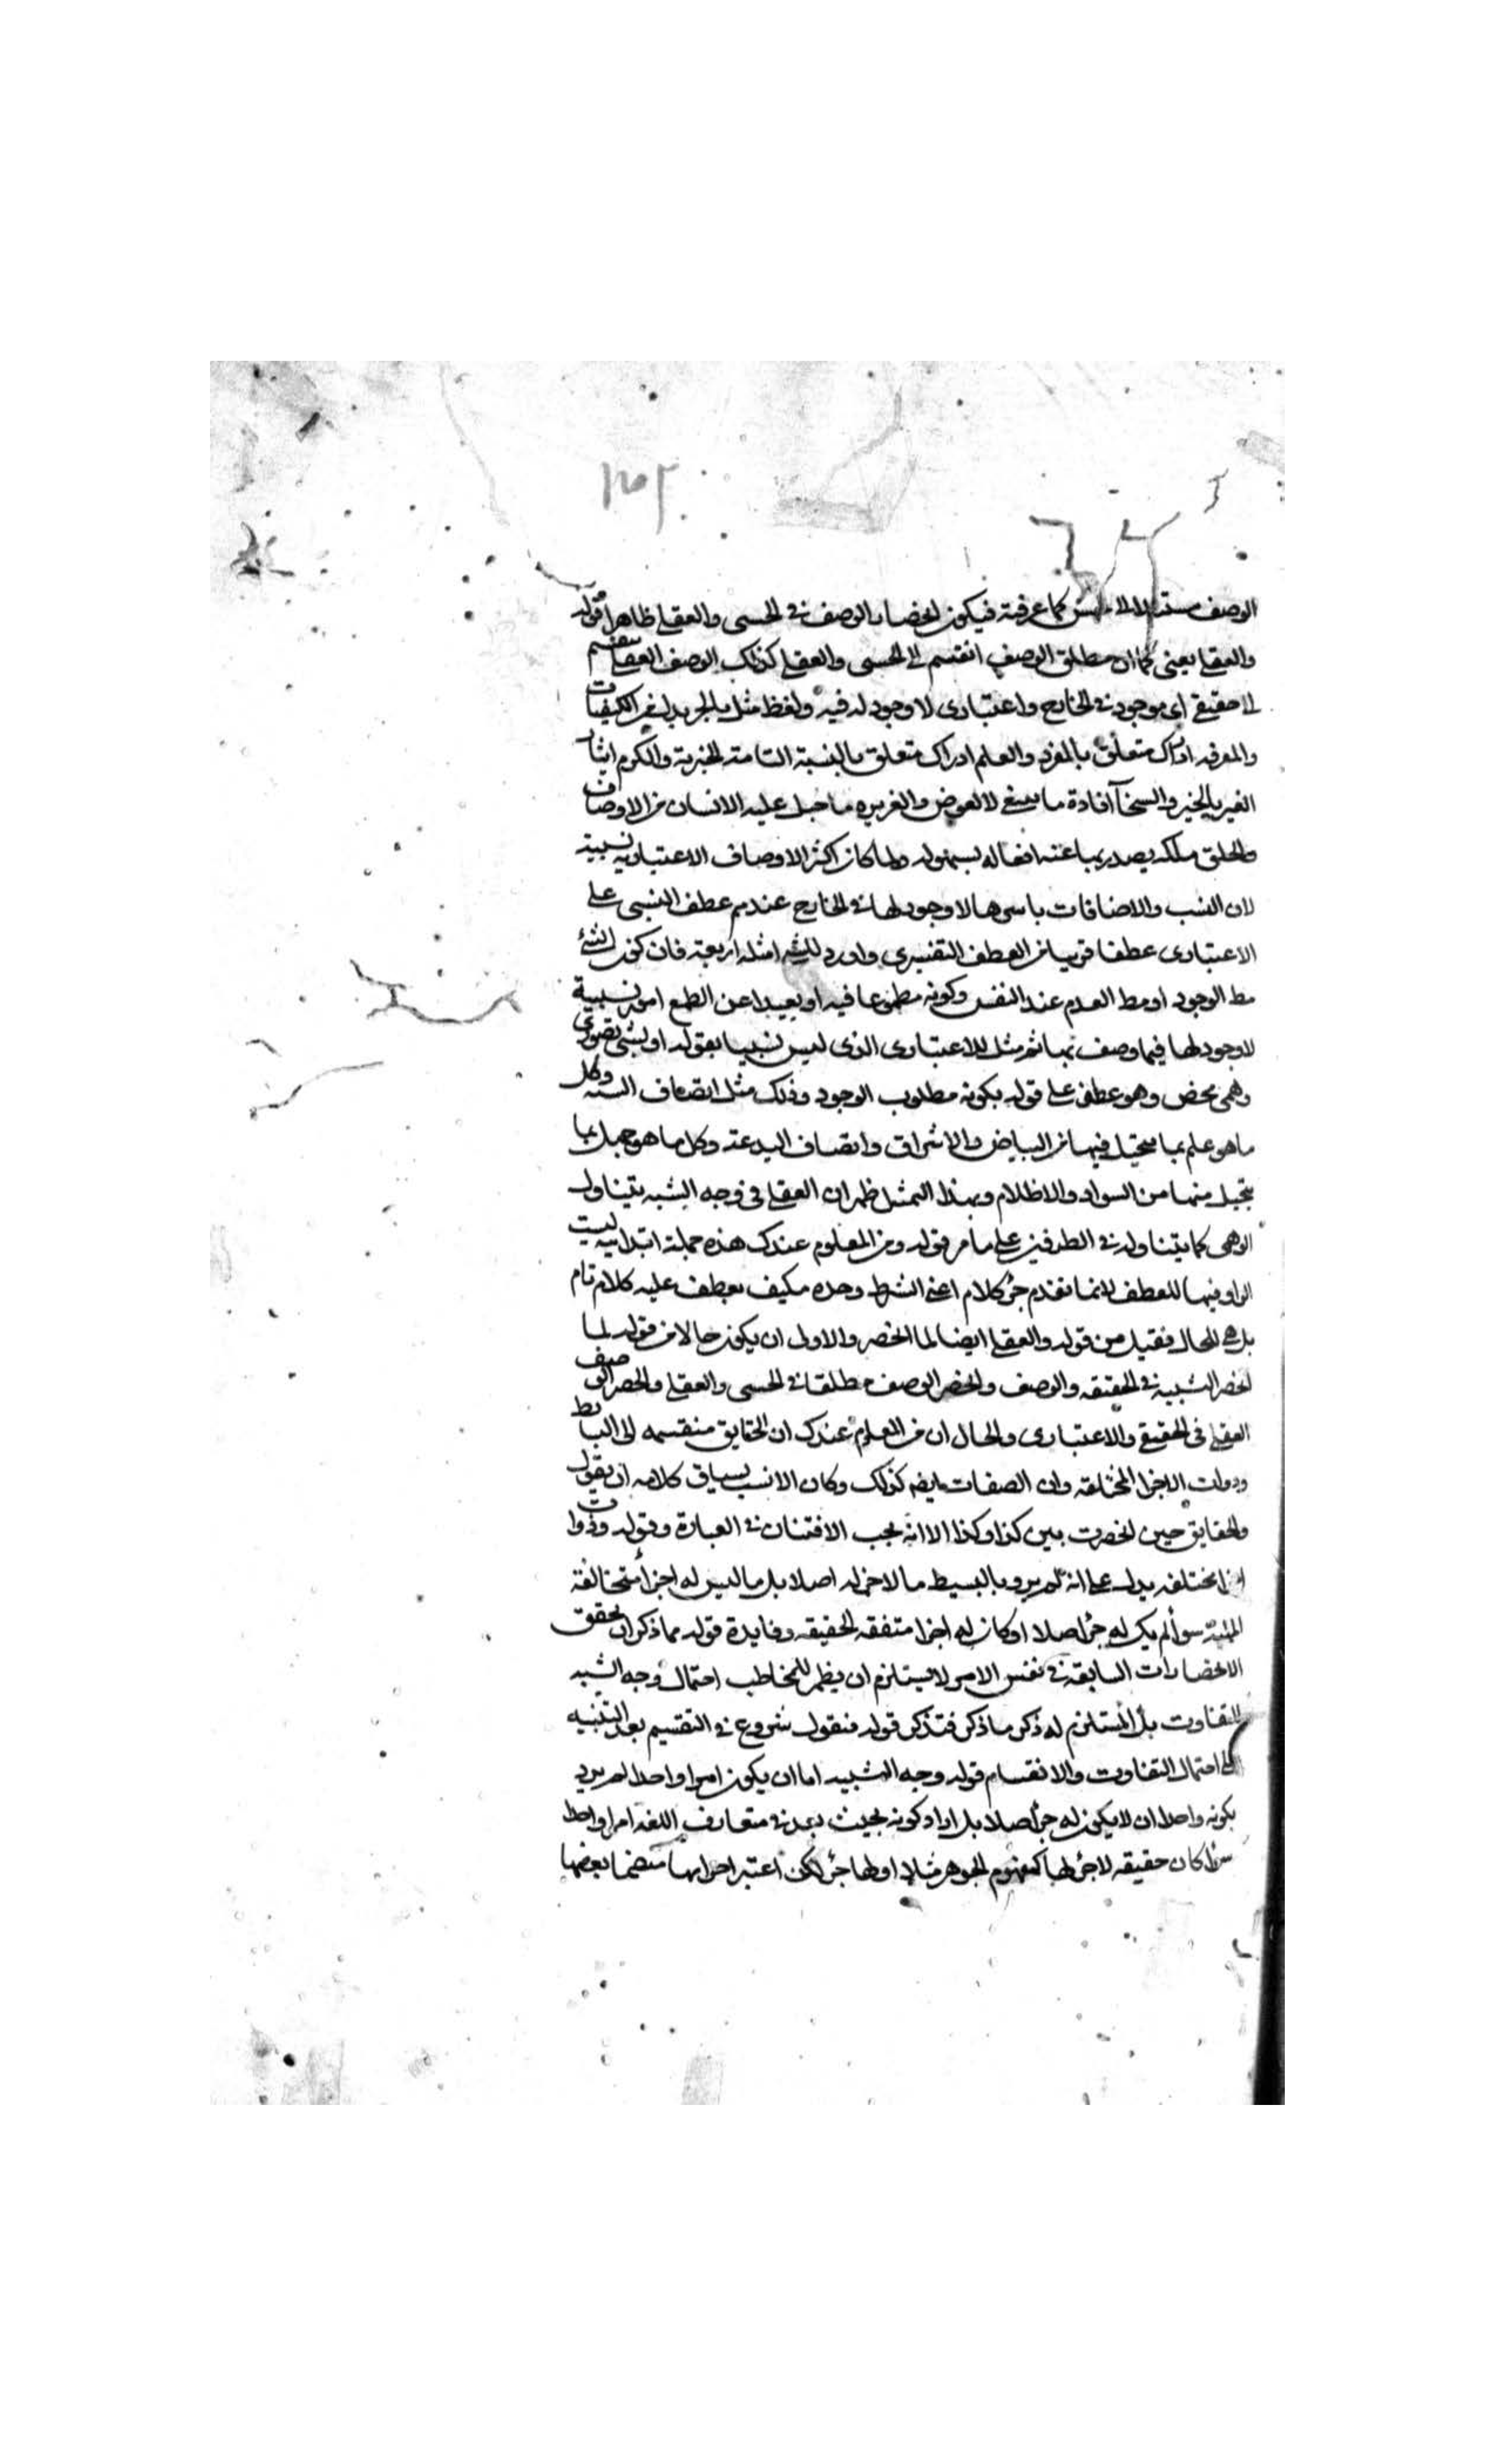 ١٢٥٢
الوصف مستند الى الحس كما عرفته فيكون انحصار الوصف في الحسى والعقلى ظاهرا قوله
والعقلى يعنى كما ان مطلق الوصف انقسم الى الحسى والعقلى كذلك الوصف العقلى ينقسم
الى حقيقى اى موجود في الخارج واعتبارى لا وجود له فيه ولفظ مثل بالجر بدل من الكيفيات
والمعرفه ادراك متعلق بالمفرد والعلم ادراك متعلق بالنسبة التامة الخبرية والكرم ايثار
الغير بالخير والسخآ افادة ما ينبغى لا لعوض والغريزه ما جبل عليه الانسان من الاوصاف
والخلق ملكه يصدر بها عنه افعاله بسهوله ولما كان اكثر الاوصاف الاعتباريه نسبية
لان النسب والاضافات باسرها لا وجود لها في الخارج عندهم عطف النسبى على
الاعتبارى عطفا قريبا من العطف التفسيرى واورد للنسبى امثله اربعة فان كون الشئ
مط الوجود او مط العدم عند النفس وكونه مطموعا فيه او بعيدا عن الطمع امور نسبية
لا وجود لها فيما وصف بها ثم مثل للاعتبارى الذى ليس نسبيا بقوله او بشئ تصورى
وهمى محض وهو عطف على قوله بكونه مطلوب الوجود وذلك مثل اتصاف السنه وكل
ما هو علم بما يتخيل فيها من البياض والاشراق واتصاف البدعة وكل ما هو جهل بما
يتخيل منها من السواد والاظلام وبهذا التمثيل ظهر ان العقلى في وجه الشبه يتناول
الوهمى كما يتناوله في الطرفين على ما مر قوله ومن المعلوم عندك هذه جملة ابتدائيه ليست
الواو فيها للعطف لان ما تقدم جزء كلام اعنى الشرط وحده فكيف يعطف عليه كلام تام
بل هى للحال فقيل من قوله والعقلى ايضا لما انحصر والاولى ان يكون حالا من قوله لما
انحصر التشبيه في الحقيقه والوصف وانحصر الوصف مطلقا في الحسى والعقلى وانحصر الوصف
العقلى في الحقيقى والاعتبارى والحال ان من المعلوم عندك ان الحقايق منقسمه الى البسايط
وذوات الاجزا المختلفه وان الصفات ايضا كذلك وكان الانسب بسياق كلامه ان يقول
والحقايق حين انحصرت بين كذا وكذا الا انه يحب الافتنان في العبارة وقوله وذوات
اجزا مختلفه يدل على انه لم يرد بالبسيط ما لا جزء له اصلا بل ما ليس له اجزأ متخالفة
الهيئة سوا لم يكن له جزء اصلا او كان له اجزا متفقه الحقيقه وفايدة قوله مما ذكر ان تحقق
الانحصارات السابقه في نفس الامر لا يستلزم ان يظهر للمخاطب احتمال وجه الشبه
للتفاوت بل المستلزم له ذكر ما ذكر فتذكر قوله فنقول شروع في التقسيم بعد التنبيه
على احتمال التفاوت والانقسام قوله وجه التشبيه اما ان يكون امرا واحدا لم يرد
بكونه واحدا ان لا يكون له جزء اصلا بل اراد كونه بحيث يعد في متعارف اللغه امرا واحدا
سوا كان حقيقه لا جزء لها كمفهوم الجوهر مثلا او لها جزء لكن اعتبر اجزائها منضما بعضها